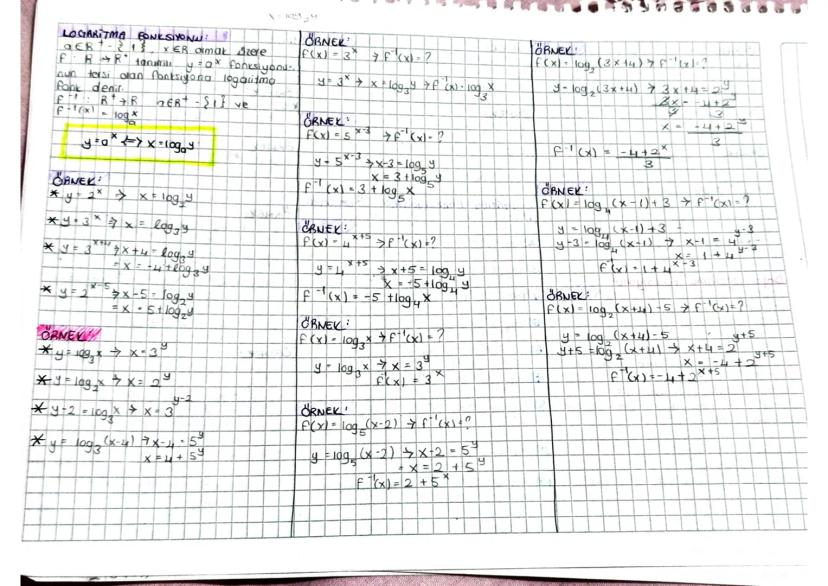 LOGARİTMA FONKSİYONU:
a∈R⁺-{1}, x∈R olmak üzere
f: R→R⁺ tanımlı y=aˣ fonksiyonu-
nun tersi olan fonksiyona logaritma
fonk denir.
f⁻¹: R⁺→R a∈R⁺-{1} ve
f⁻¹(x) = logₐx
y=aˣ <=> x=logₐy
ÖRNEK:
* y=2ˣ → x=log₂y
* y=3ˣ → x= log₃y
* y=3ˣ⁺⁴ → x+4=log₃y
=x=-4+log₃y
* y=2ˣ⁻⁵ → x-5=log₂y
=x=5+log₂y
ÖRNEK:
* y=log₃x → x=3ʸ
* y=log₂x → x=2ʸ
* y-2=log₃x → x=3ʸ⁻²
* y=log₃(x-4) → x-4=5ʸ
x=4+5ʸ
ÖRNEK:
f(x)=3ˣ → f⁻¹(x)=?
y=3ˣ → x=log₃y → f⁻¹(x)=log₃x
ÖRNEK:
f(x)=5ˣ⁻³ → f⁻¹(x)=?
y=5ˣ⁻³ → x-3=log₅y
x=3+log₅y
f⁻¹(x)=3+log₅x
ÖRNEK:
f(x)=4ˣ⁺⁵ → f⁻¹(x)=?
y=4ˣ⁺⁵ → x+5=log₄y
x=-5+log₄y
f⁻¹(x)=-5+log₄x
ÖRNEK:
f(x)=log₃x → f⁻¹(x)=?
y=log₃x → x=3ʸ
f⁻¹(x)=3ˣ
ÖRNEK:
f(x)=log₅(x-2) → f⁻¹(x)=?
y=log₅(x-2) → x-2=5ʸ
=x=2+5ʸ
f⁻¹(x)=2+5ˣ
ÖRNEK:
f(x)=log₂(3x+4) → f⁻¹(x)=?
y=log₂(3x+4) → 3x+4=2ʸ
3x=-4+2ʸ
3 3
x=-4+2ʸ
3
f⁻¹(x)=-4+2ˣ
3
ÖRNEK:
f(x)=log₄(x-1)+3 → f⁻¹(x)=?
y=log₄(x-1)+3
y-3=log₄(x-1) → x-1=4ʸ⁻³
x=1+4ʸ⁻³
f⁻¹(x)=1+4ˣ⁻³
ÖRNEK:
f(x)=log₂(x+4)-5 → f⁻¹(x)=?
y=log₂(x+4)-5
y+5=log₂(x+4) → x+4=2ʸ⁺⁵
x=-4+2ʸ⁺⁵
f⁻¹(x)=-4+2ˣ⁺⁵